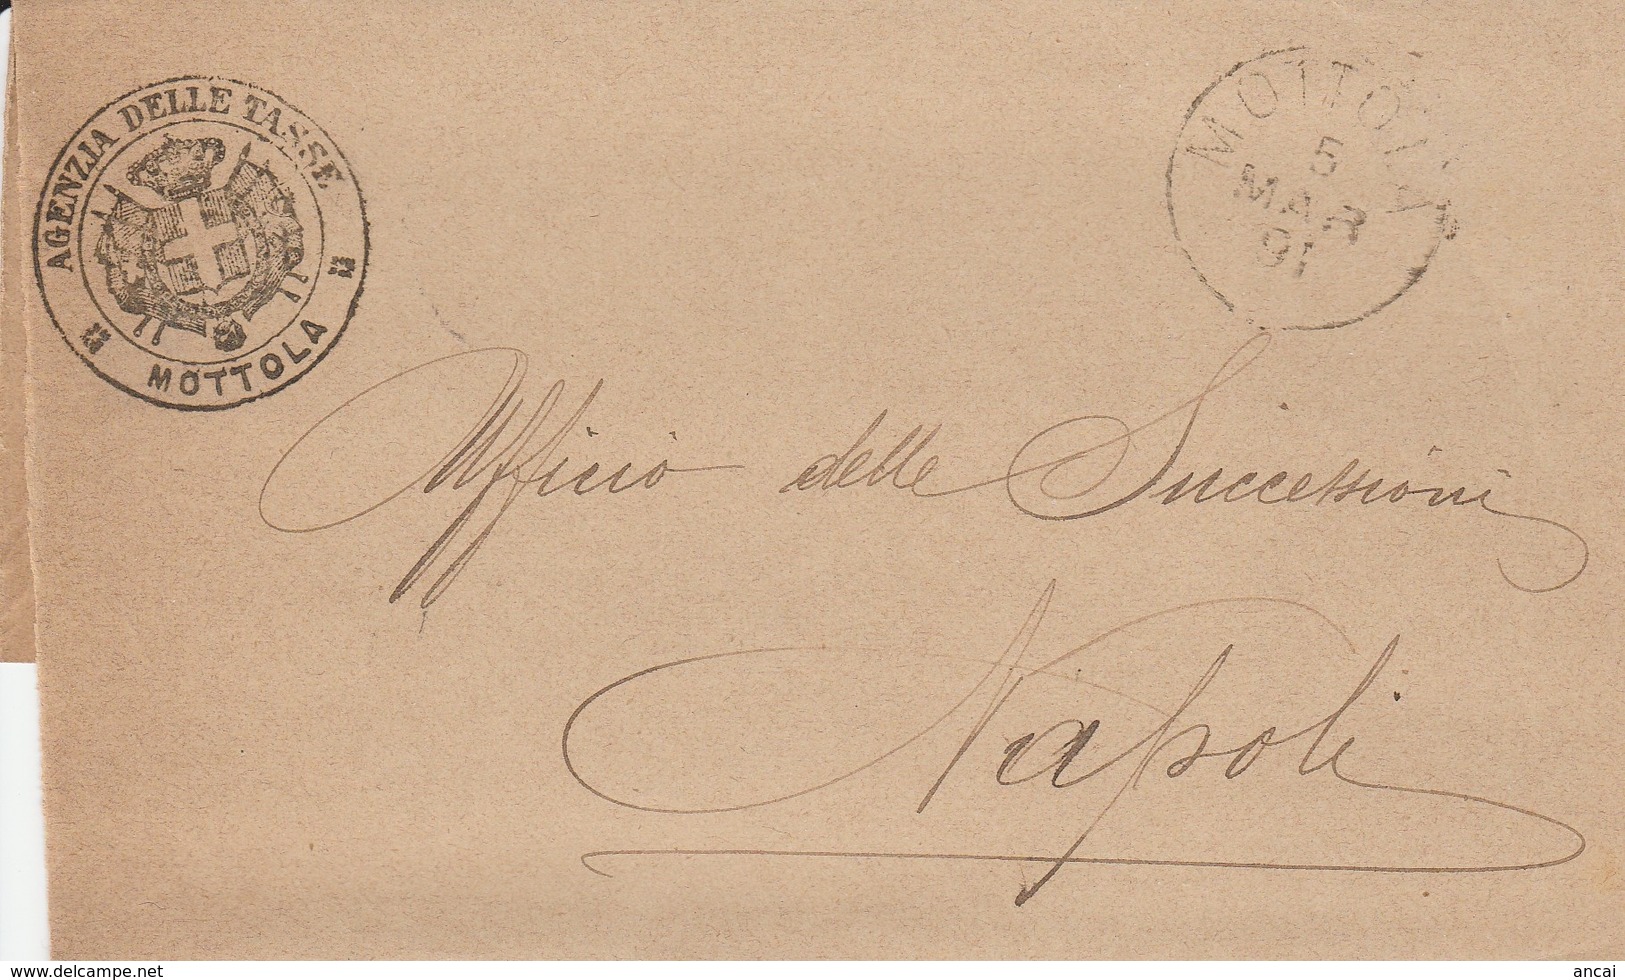 AGENZIA DELLE TASSE
MOTTOLA
MOTTOLA
5
MAR
91
Ufficio delle Successioni
Napoli
www.delcampe.net
ancai